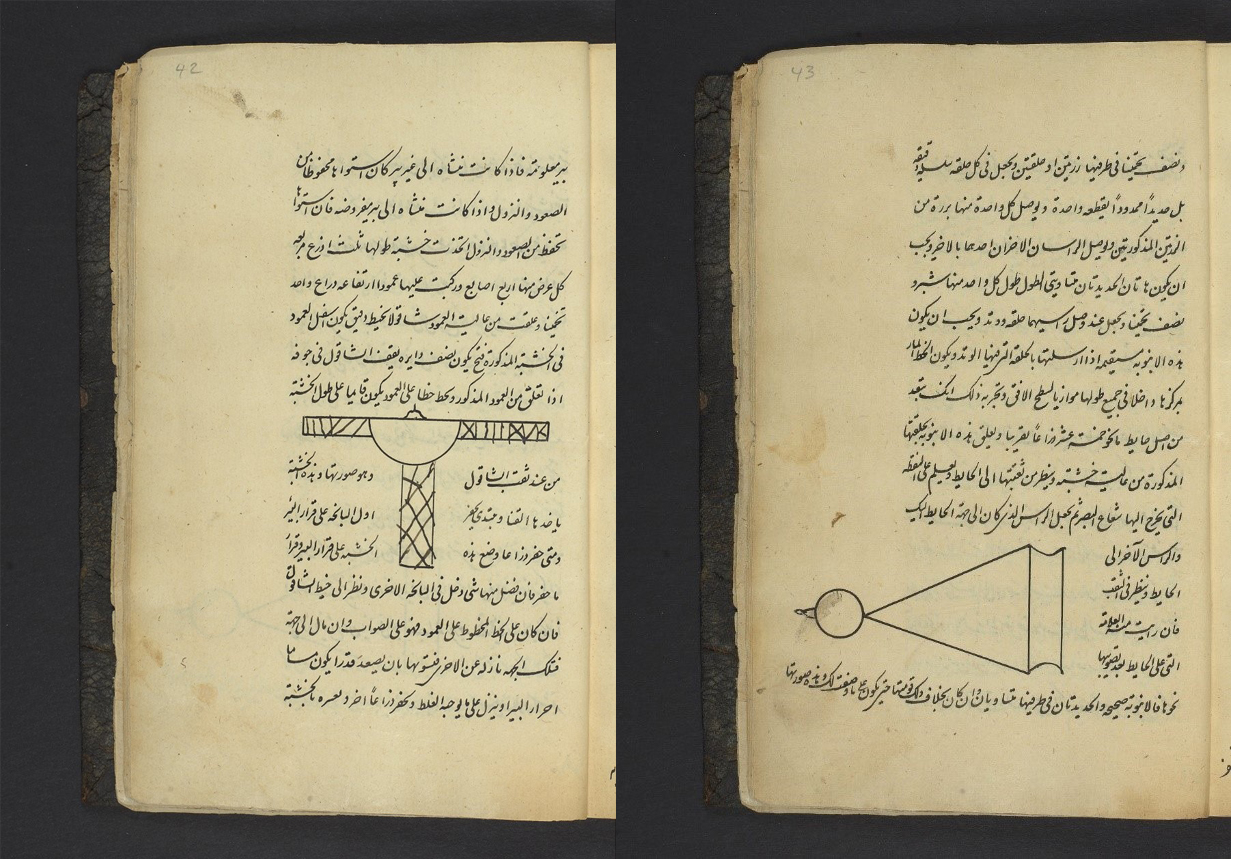 42
بير معلومة فاذا كانت منشاه الى غير بير كان استواها محفوظا من
الصعود والنزول واذا كانت منشاه الى بير مفروضه فان استواها
تحفظ من الصعود والنزول اتخذت خشبة طولها ثلث اذرع مربعه
كل عرض منها اربع اصابع وركبت عليها عمودا ارتفاعه ذراع واحد
تخمينا وعلقت من عالية العمود شاقولا بخيط دقيق يكون اسفل العمود
فى الخشبة المذكورة فتح يكون نصف دايره يقف الشاقول فى جوفه
اذا تعلق من العمود المذكور وتخط خطا على العمود يكون قايما على طول الخشبة
من عند ثقب الشاقول وهو صورتها وهذه الخشبة
ياخدها القنا ويبتدى اول البانحه على قرار البير
ومتى حفر ذراعا وضع هذه الخشبه على قرار البير وقرار
ما حفر فان فضل منها شى دخل فى البانحه الاخرى ونظر الى خيط الشاقول
فان كان على الخط المخطوط على العمود فهو على الصواب وان مال الى جهة
فتلك الجهه نازله عن الاخرى فتسويها بان يصعد قدرا يكون مساما
احرار البير او ينزل على ما يوجبه الغلط وتحفر ذراعا اخر وتعبره بالخشبة
43
ونصف تخمينا فى طرفيها زرتين او حلقتين وتجعل فى كل حلقه سلسلة دقيقه
بل حديدا ممدودا بقطعه واحدة ويوصل كل واحدة منها بزرة من
الزرتين المذكورتين ويوصل الراسان الاخران احدهما بالاخر ويجب
ان يكون هاتان الحديدتان متساويتى الطول طول كل واحد منها شبر و
نصف تخمينا وتجعل عند وصل راسيهما حلقه ووتد ويجب ان يكون
هذه الانبوبه مستقيمه اذا ارسلتها بالحلقه التى فيها الوتد ويكون الخط المار
بمركزها داخلا فى جميع طولها موازيا لسطح الافق وتجربه ذلك انك تبعد
من اصل حايط نحو خمسة عشر ذراعا تقريبا وتعلق هذه الانبوبه بحلقتها
المذكورة من عالية خشبة وتنظر من ثقبها الى الحايط وتعلم على النقطه
التى يخرج اليها شعاع البصر ثم تجعل الراس الذى كان الى جهة الحايط اليك
والراس الآخر الى
الحايط وتنظر فى الثقب
فان رايت منه العلامة
التى على الحايط بعد تصويبها
نحوها فالانبوبه صحيحه والحديدتان فى طرفيها متساويان وان كان بخلاف ذلك قومتها حتى يكون على ما وصفت لك وهذه صورتها